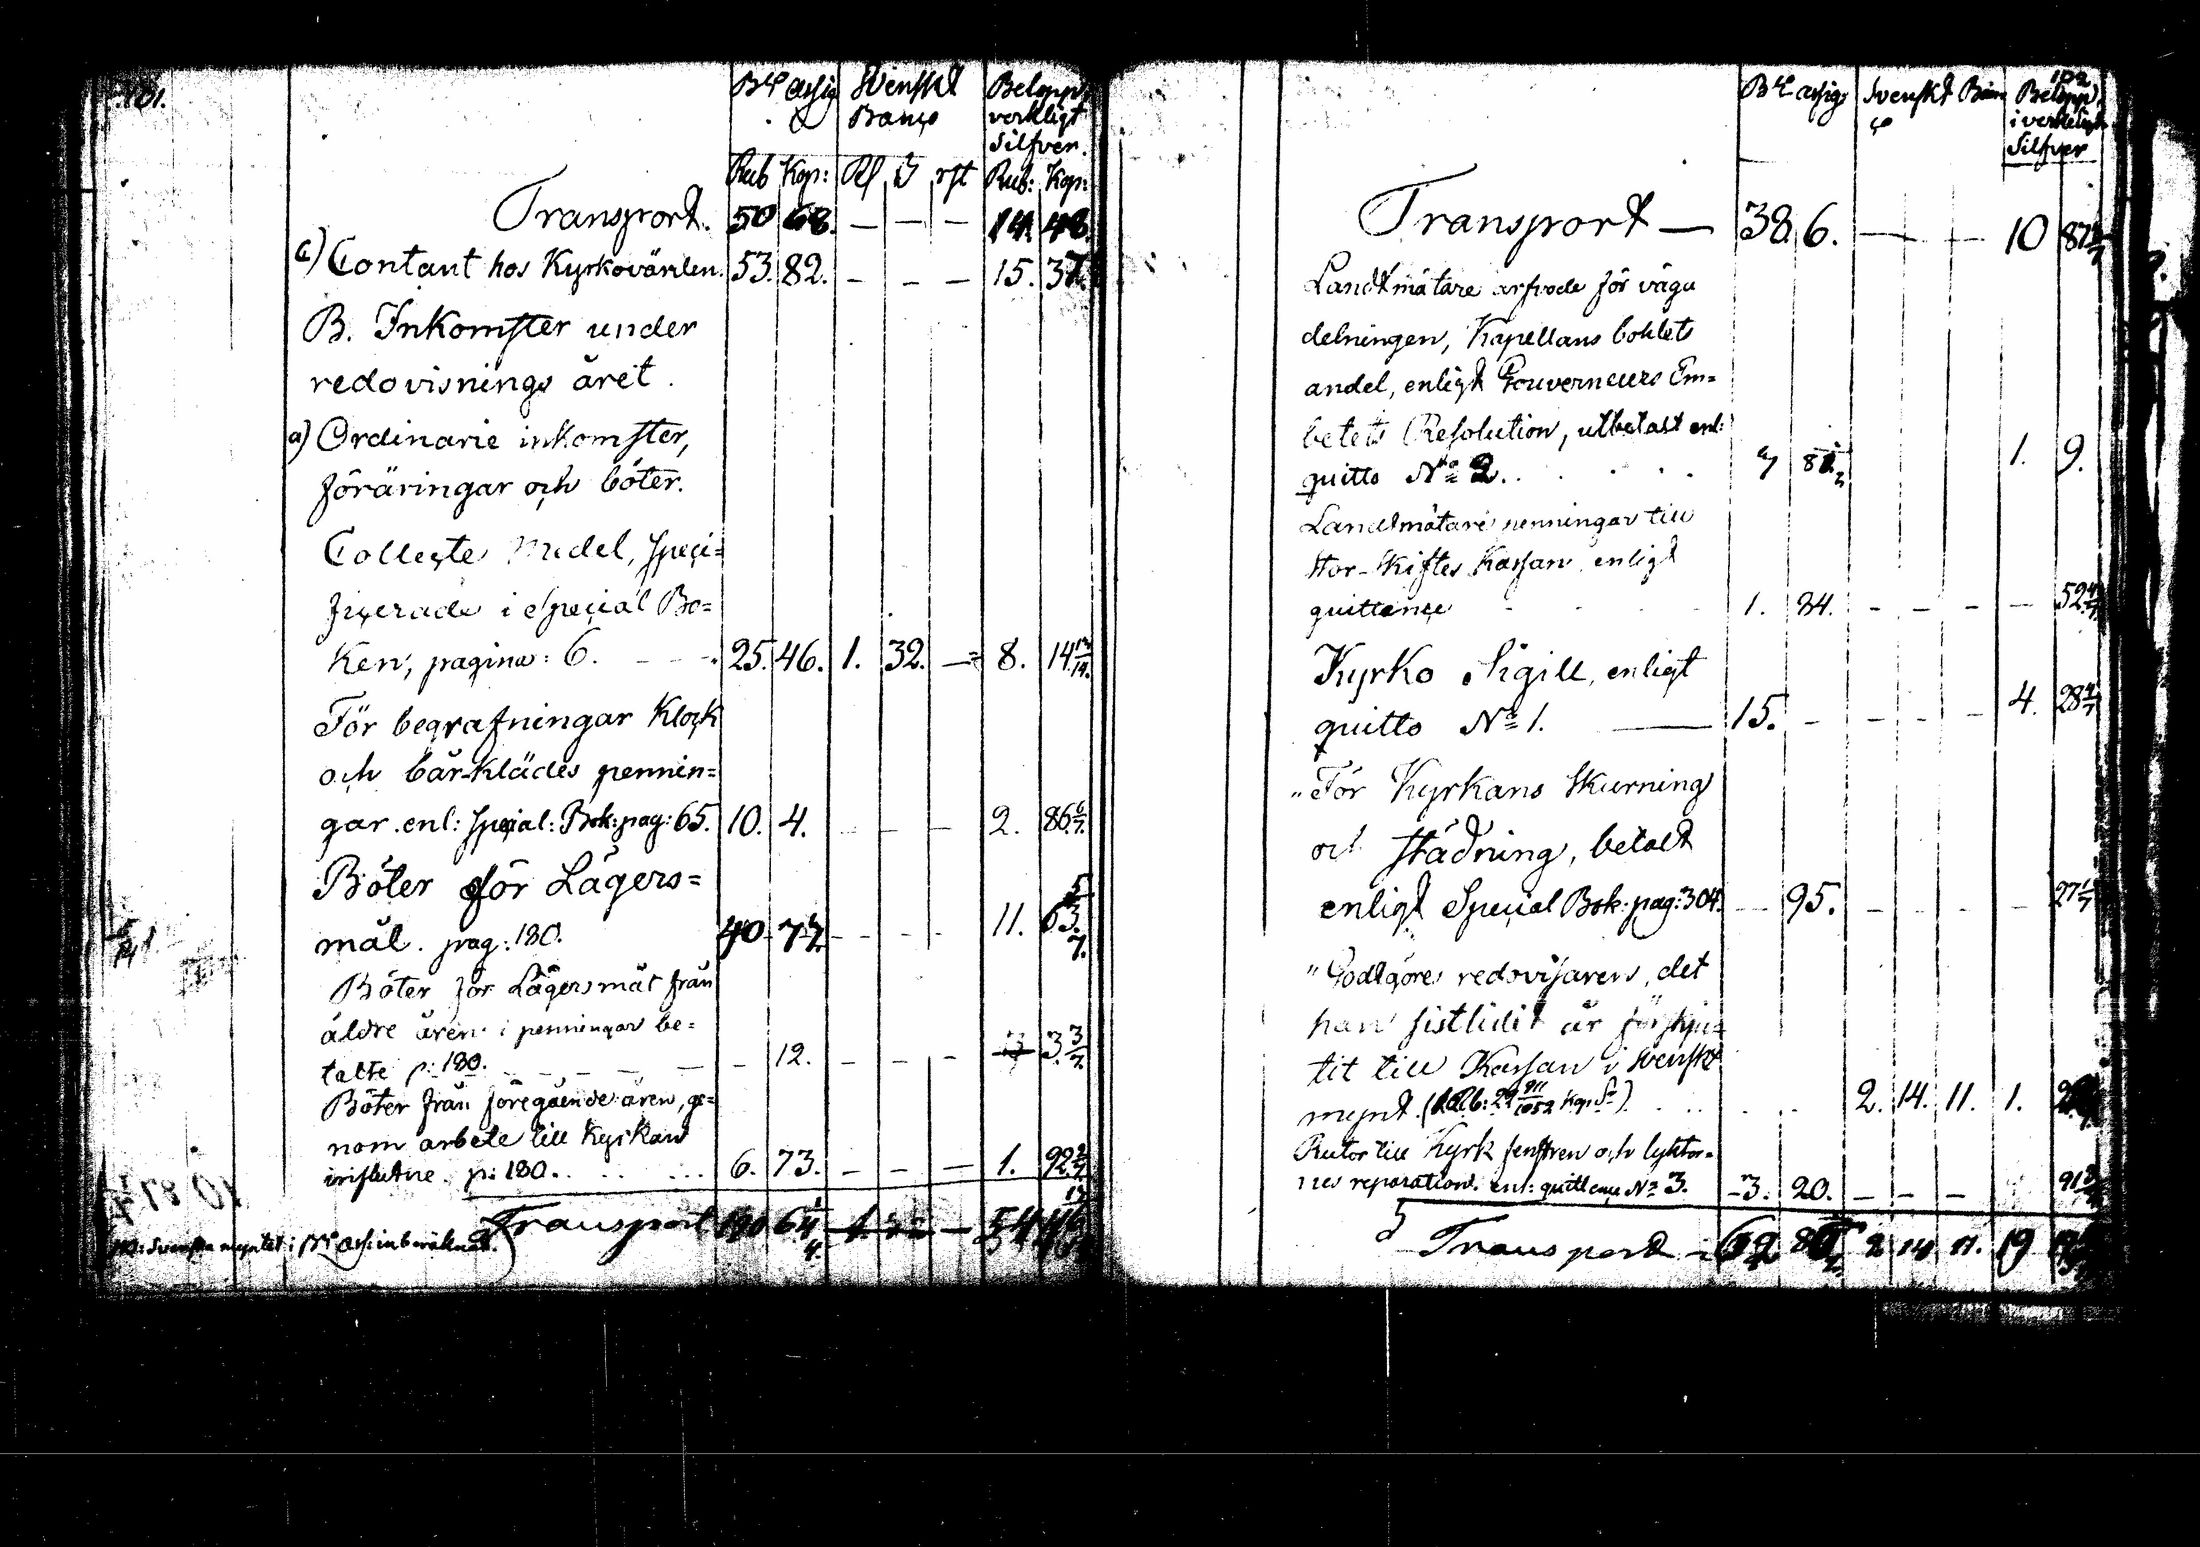 101.
Bco assig Svenskt Belopp
Banco verkligt
Silfver.
Rub Kop: Rd ß rst Rub: Kop:
Transport. 50 68. — — — 14. 48.
c) Contant hos Kyrkovärden. 53. 82. — — — 15. 37
B. Inkomster under
redovisnings året.
a) Ordinarie inkomster,
föräringar och böter.
Collecte Medel, speci=
ficerade i Special Bo=
ken, pagina: 6. — — 25. 46. 1. 32. — 8. 14 13/14.
För begrafningar Klock
och bår-klädes pennin=
gar. enl: special: Bok: pag: 65. 10. 4. — — — 2. 86 6/7.
Böter för Lägers=
mål. pag: 180. 40 77 — — — 11. 63. 5/7.
Böter för Lägersmål från
äldre åren i penningar be=
talte p: 180. — — — 12. — — — 3. 3/7
Böter från föregående åren, ge=
nom arbete till Kyrkan
influtne. p: 180. . . . 6. 73. — — — 1. 92 2/7
Transport 190 64
102
Bco assig Svenskt Banco Belopp
i verkligt
Silfver
Transport — 38. 6. — — — 10 87
Landtmätare arfvode för väga
delningen, Kapellans bohlets
andel, enligt Gouverneurs Em=
betets Resolution, utbetalt enl:
quitto No 2. . . . 1. 9.
Landtmätare penningar till
Stor-Skiftes Kassan enligt
quittence - - - 1. 84. — — — — 52 4/7
Kyrko Sigill, enligt
quitto No 1. — 15. — — — — 4. 28 4/7
" För Kyrkans Skurning
och städning, betalt
enligt Special Bok: pag: 304. — 95. — — — — 27 1/7
" Godtgöres redovisaren, det
han sistlidit år förskju=
tit till Kassan i svenskt
mynt. (1 Rb: 29 911/1052 Kop Sr). . . . 2. 14. 11. 1.
Rutor till Kyrk fenstren och lyktor=
nes reparation. enl: quittence No 3. — 3. 20. — — — 91 3/7
Transport — 62 2 14 11. 19